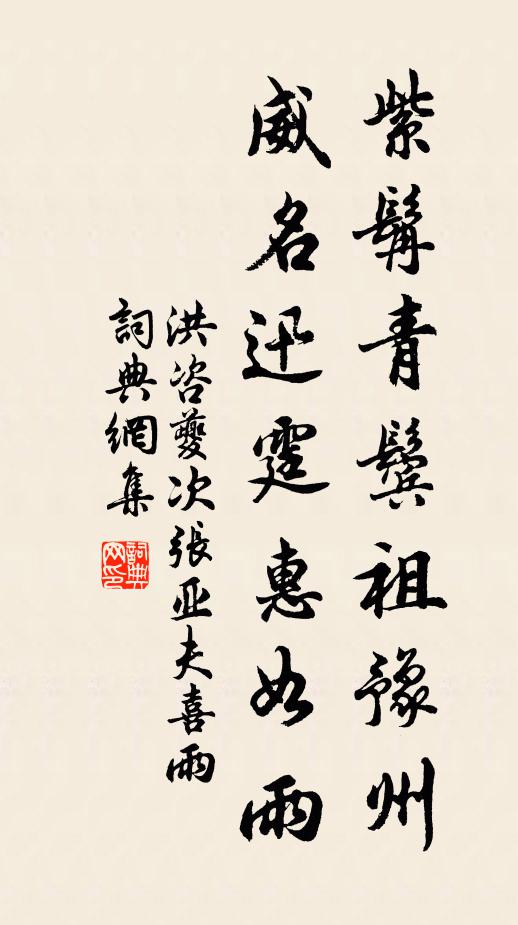 紫髯青鬢祖豫州
威名迅霆惠如雨
洪咨夔次張亚夫喜雨
詞典網集
詞典网印